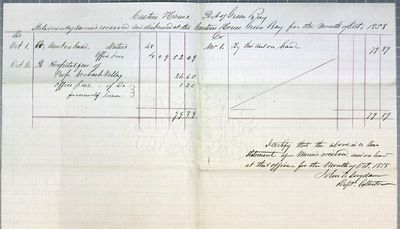 Custom House Port of Green Bay
Statement of Monies received and disbursed at the Custom House Green Bay for the month of Oct. 1858
Dr Cr
Oct 1. To Amt on hand Duties 48
Office Dues 4 09 52.09
Nov 1. By Amt on hand 79 89
Hospital fees of
Prop. Wabash Valley 26.60
Office fees of Do. 1 20
79.89 79 89
I certify that the above is a true
statement of Monies received and on hand
at this office for the Month of Oct. 1858
John V. Suydam
Dept. Collector